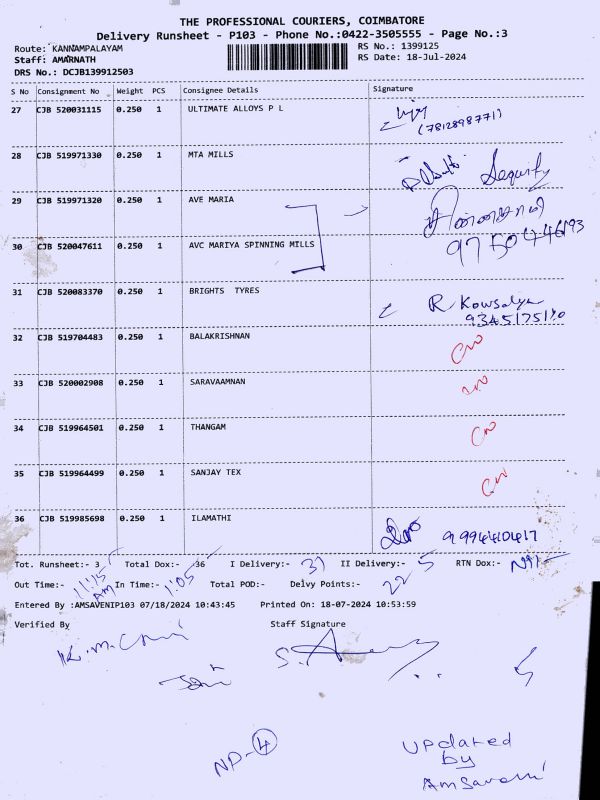 THE PROFESSIONAL COURIERS, COIMBATORE
Delivery Runsheet - P103 - Phone No.:0422-3505555 - Page No.:3
Route: KANNAMPALAYAM RS No.: 1399125
Staff: AMARNATH RS Date: 18-Jul-2024
DRS No.: DCJB139912503
S No Consignment No Weight PCS Consignee Details Signature
27 CJB 520031115 0.250 1 ULTIMATE ALLOYS P L
(7812898771)
28 CJB 519971330 0.250 1 MTA MILLS
29 CJB 519971320 0.250 1 AVE MARIA
30 CJB 520047611 0.250 1 AVC MARIYA SPINNING MILLS
31 CJB 520083370 0.250 1 BRIGHTS TYRES R Kowsalya
32 CJB 519704483 0.250 1 BALAKRISHNAN
33 CJB 520002908 0.250 1 SARAVAAMNAN
34 CJB 519964501 0.250 1 THANGAM
35 CJB 519964499 0.250 1 SANJAY TEX
36 CJB 519985698 0.250 1 ILAMATHI
Tot. Runsheet:- 3 Total Dox:- 36 I Delivery:- 31 II Delivery:- 5 RTN Dox:-
Out Time:- 11:15 AM In Time:- 1:05 Total POD:- Delvy Points:- 22
Entered By :AMSAVENIP103 07/18/2024 10:43:45 Printed On: 18-07-2024 10:53:59
Verified By Staff Signature
ND-4
updated
by
Amsaveni